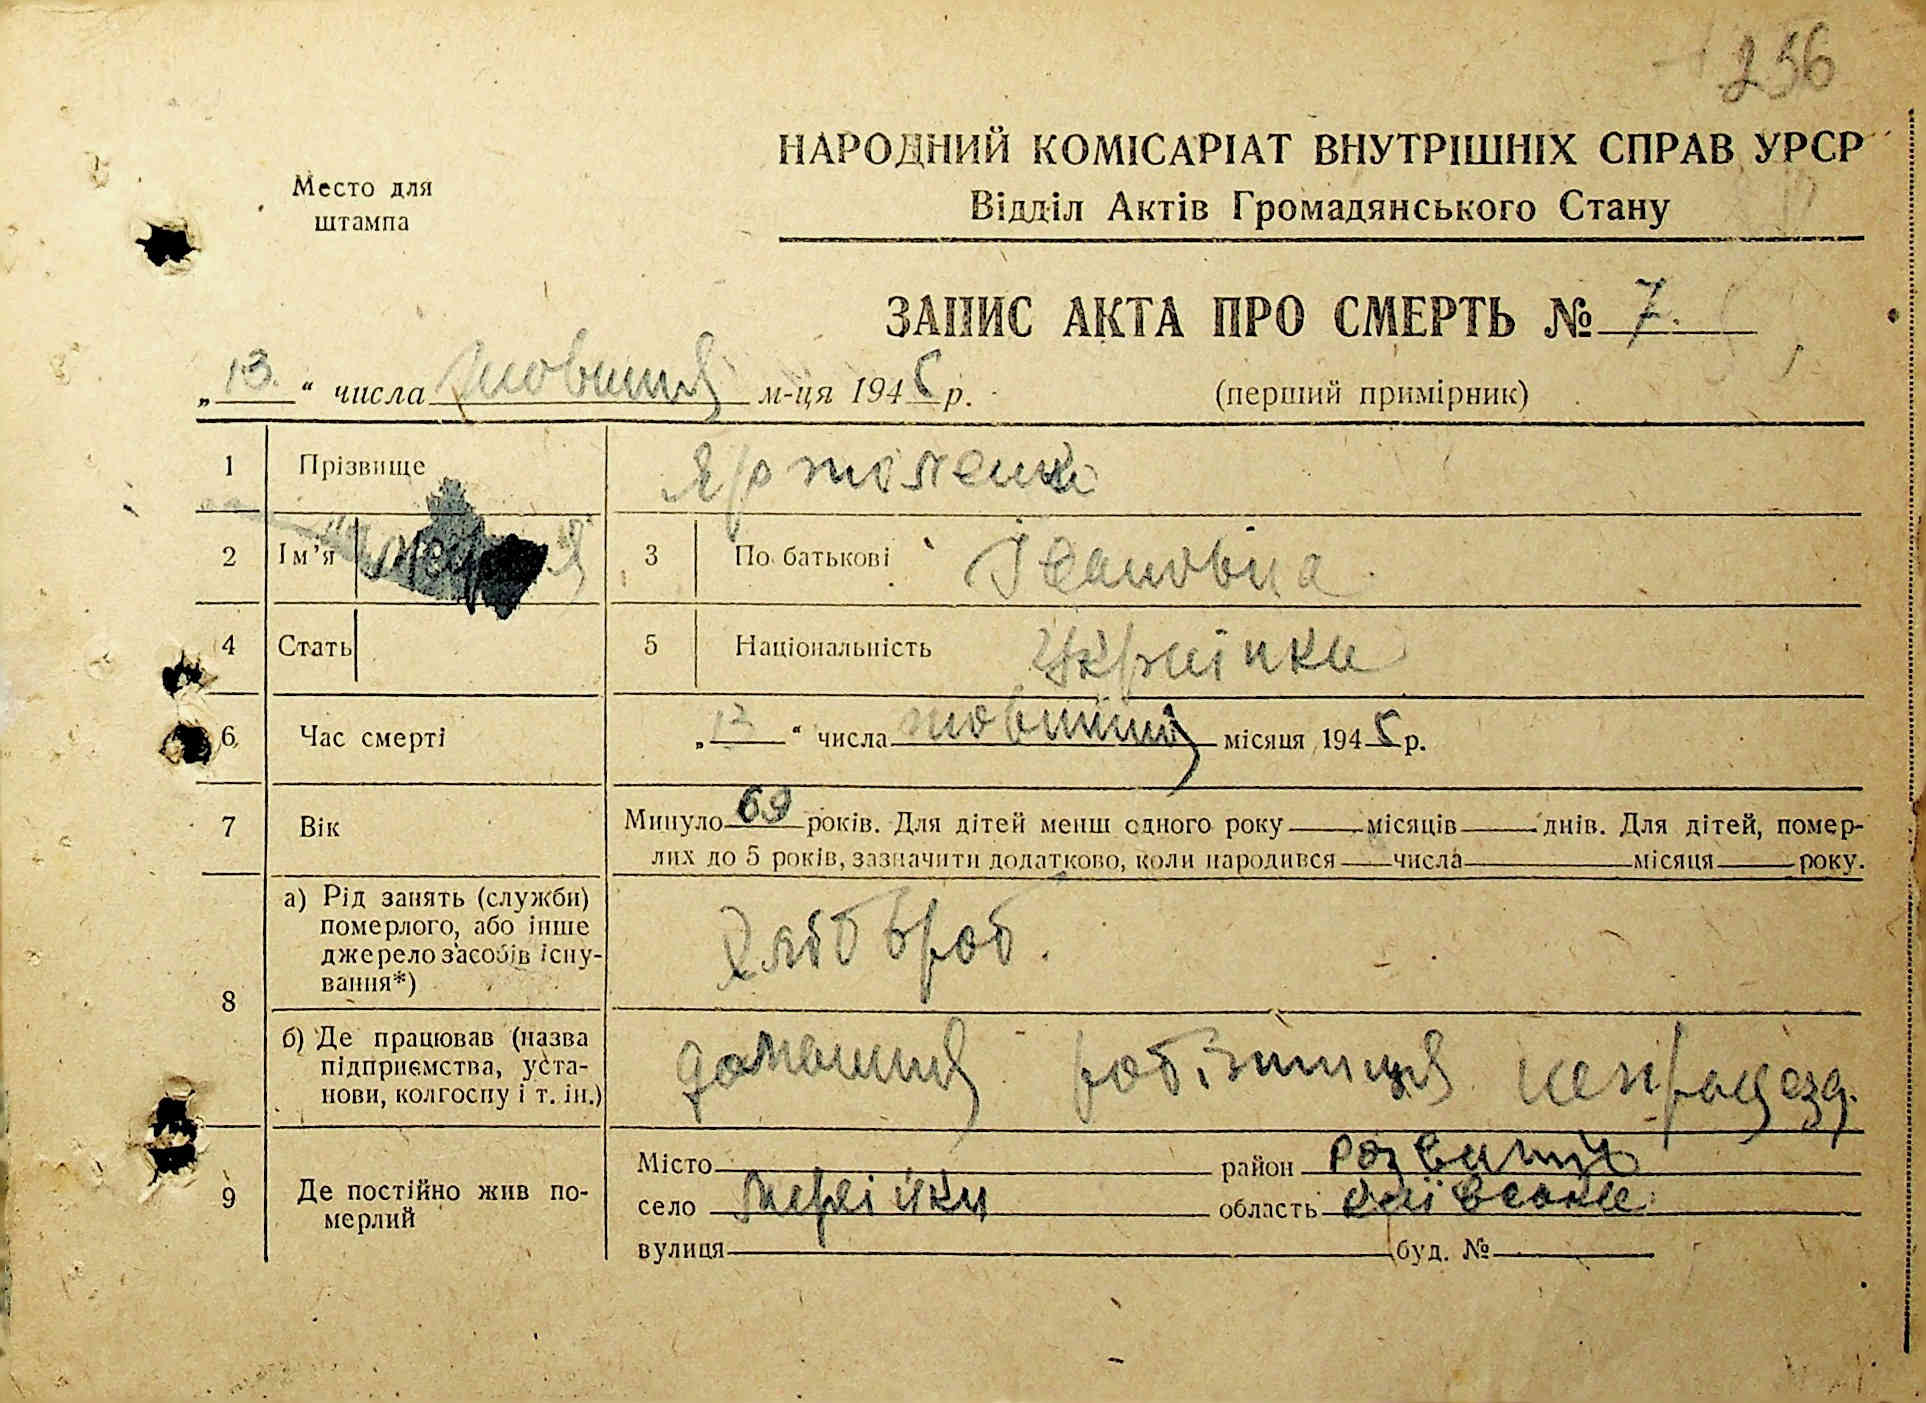 256
Место для
штампа
НАРОДНИЙ КОМІСАРІАТ ВНУТРІШНІХ СПРАВ УРСР
Відділ Актів Громадянського Стану
ЗАПИС АКТА ПРО СМЕРТЬ № 7.
„13.“ числа жовтня м-ця 1945 р.
(перший примірник)
1 Прізвище
2 Ім'я
3 По батькові Івановна
4 Стать
5 Національність Українка
6 Час смерті „12“ числа жовтня місяця 1945 р.
7 Вік Минуло 69 років. Для дітей менш одного року місяців днів. Для дітей, помер-
лих до 5 років, зазначити додатково, коли народився числа місяця року.
8 а) Рід занять (служби)
померлого, або інше
джерело засобів існу-
вання*)
хлібороб.
б) Де працював (назва
підприємства, уста-
нови, колгоспу і т. ін.)
домашня робітниця непрацезд.
9 Де постійно жив по-
мерлий
Місто район Розважів
село область Київська
вулиця буд. №